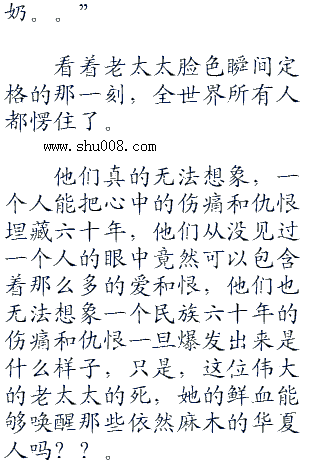 奶。。”
看着老太太脸色瞬间定
格的那一刻，全世界所有人
都愣住了。
www.shu008.com
他们真的无法想象，一
个人能把心中的伤痛和仇恨
埋藏六十年，他们从没见过
一个人的眼中竟然可以包含
着那么多的爱和恨，他们也
无法想象一个民族六十年的
伤痛和仇恨一旦爆发出来是
什么样子，只是，这位伟大
的老太太的死，她的鲜血能
够唤醒那些依然麻木的华夏
人吗？？。